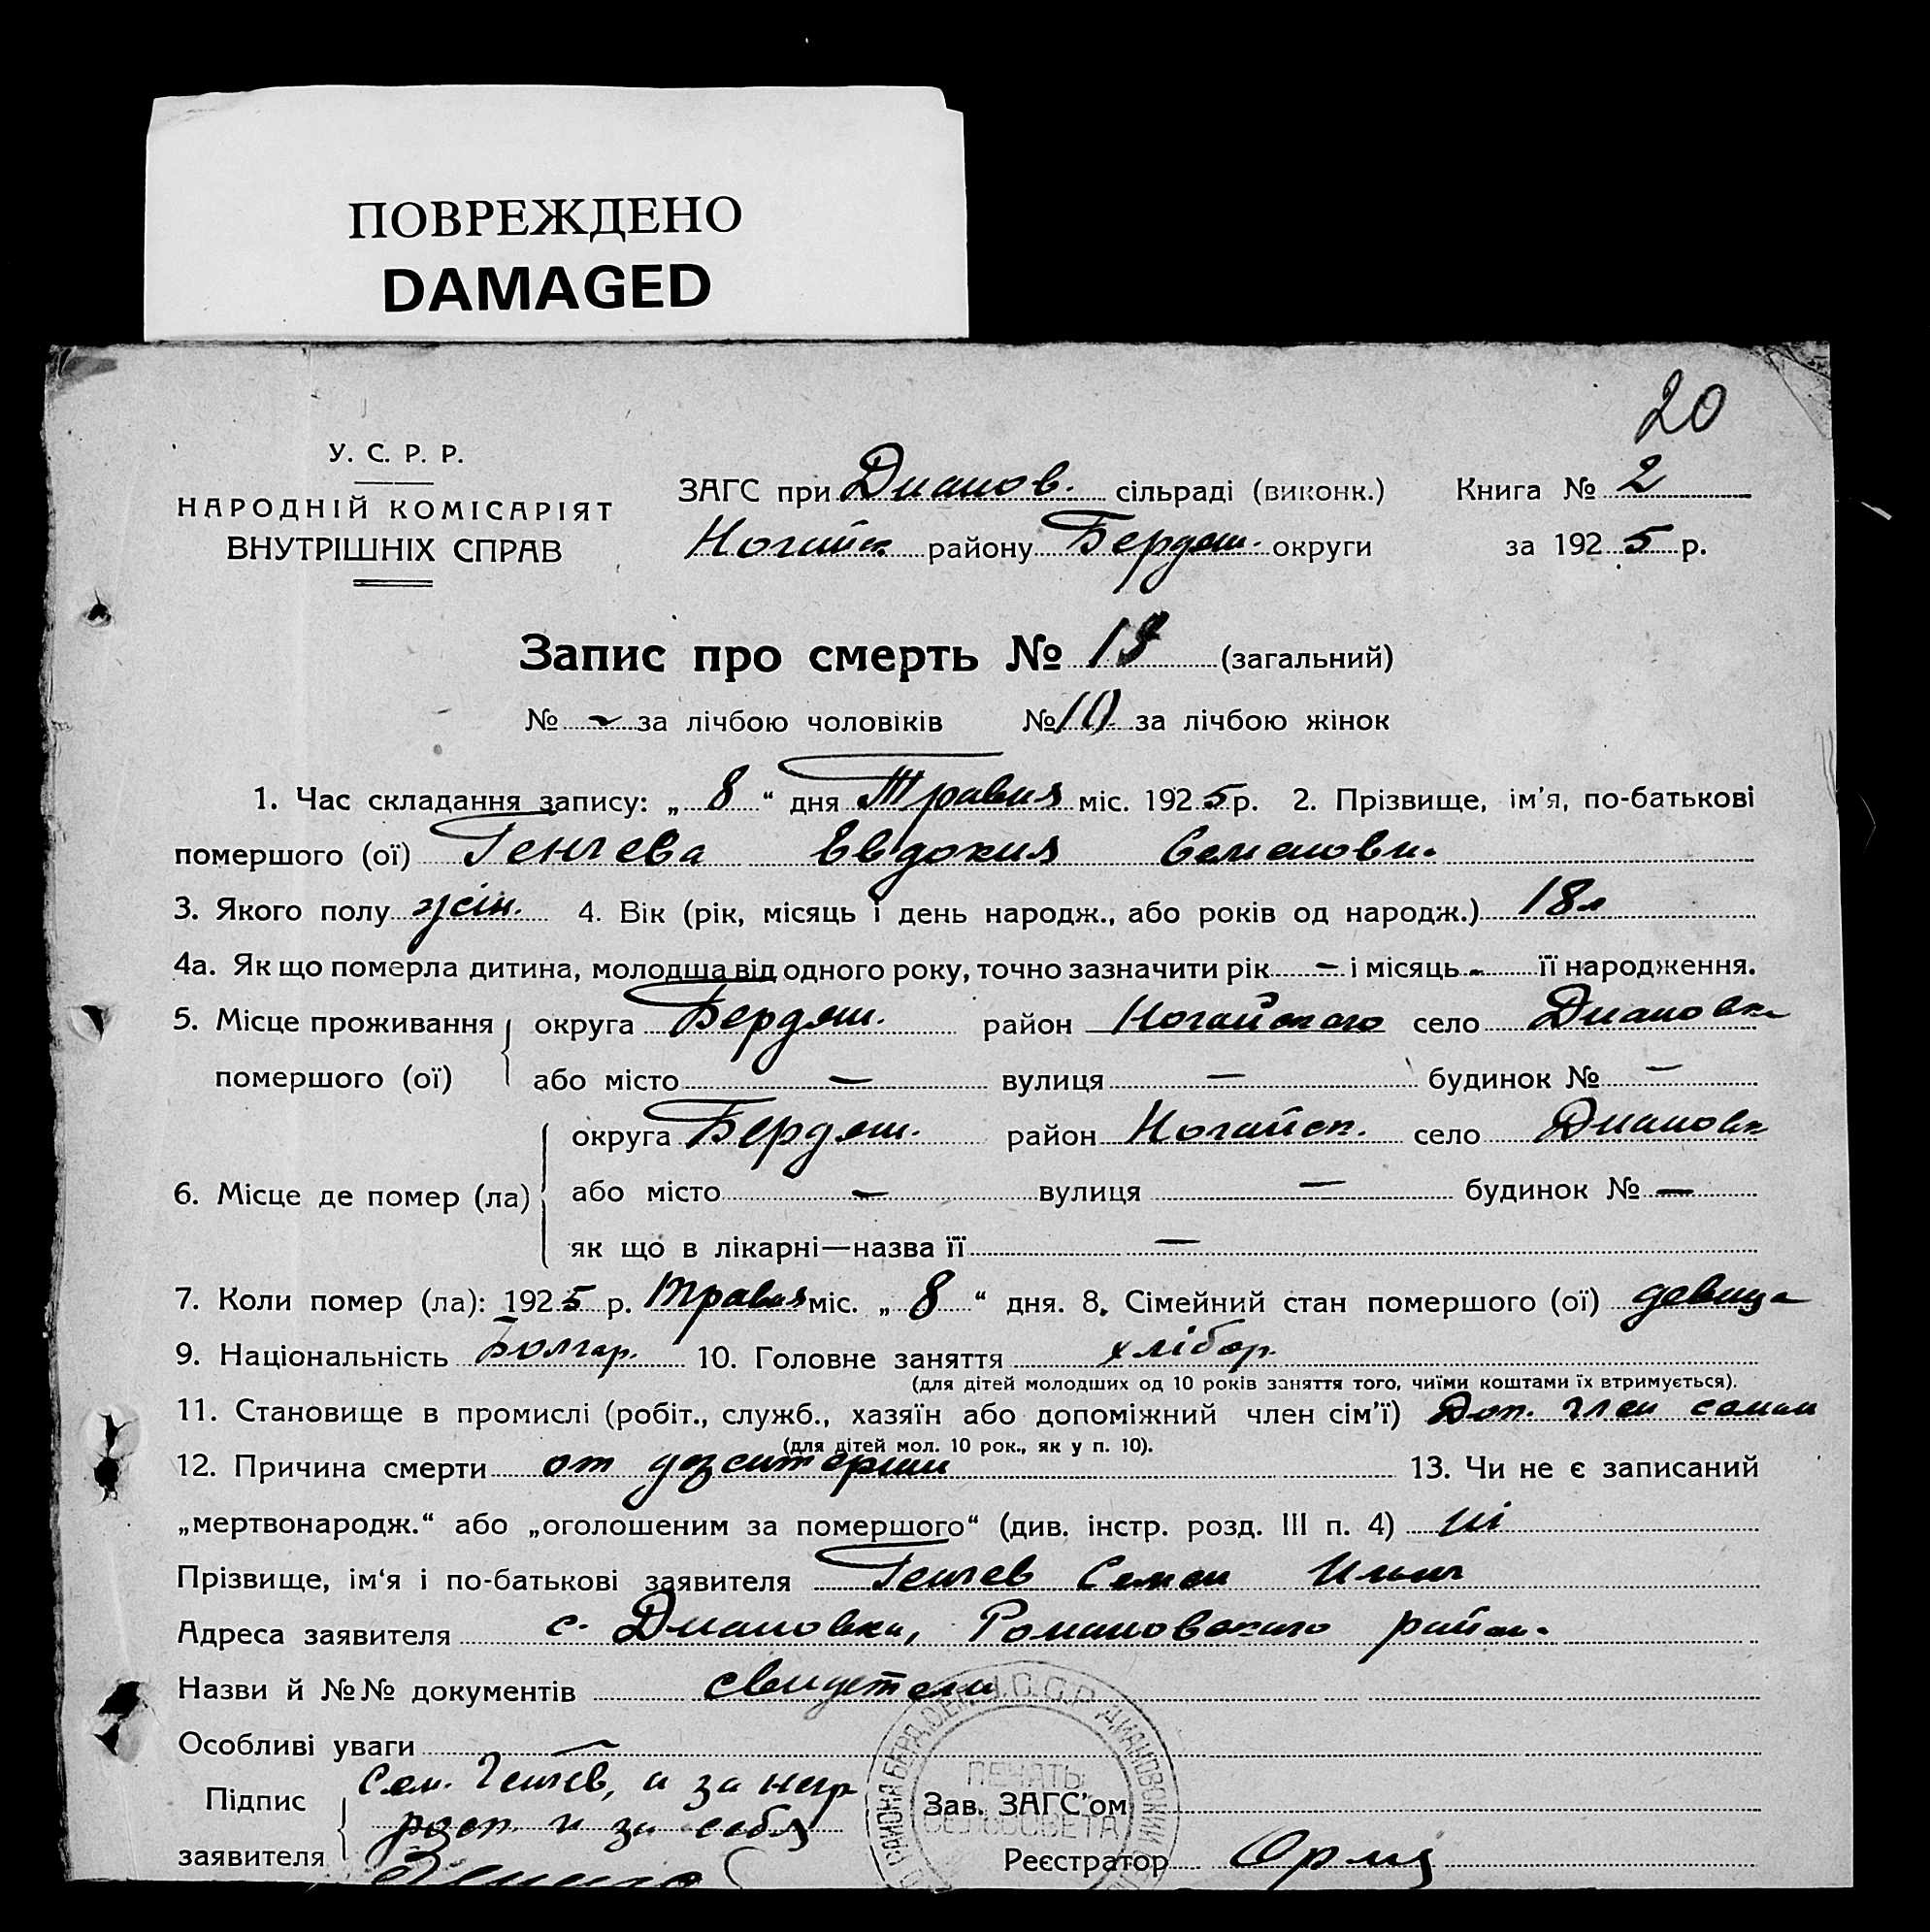 ПОВРЕЖДЕНО
DAMAGED
20
У. С. Р. Р.
НАРОДНІЙ КОМІСАРІЯТ
ВНУТРІШНІХ СПРАВ
ЗАГС при Дианов. сільраді (виконк.) Книга № 2
Ногайск району Бердян. округи за 1925 р.
Запис про смерть № 13 (загальний)
№ - за лічбою чоловіків № 10 за лічбою жінок
1. Час складання запису: „8“ дня Травня міс. 1925 р. 2. Прізвище, ім'я, по-батькові
помершого (ої) Генчева Евдокия Семеновн.
3. Якого полу жін. 4. Вік (рік, місяць і день народж., або років од народж.) 18 л
4а. Як що померла дитина, молодша від одного року, точно зазначити рік - і місяць - її народження.
5. Місце проживання округа Бердян. район Ногайского село Диановка
помершого (ої) або місто — вулиця — будинок № —
округа Бердян. район Ногайск. село Диановк
6. Місце де помер (ла) або місто — вулиця — будинок № —
як що в лікарні—назва її —
7. Коли помер (ла): 1925 р. Травня міс. „8“ дня. 8. Сімейний стан помершого (ої) девица
9. Національність Болгар. 10. Головне заняття хлібор.
(для дітей молодших од 10 років заняття того, чиїми коштами їх втримується).
11. Становище в промислі (робіт., служб., хазяїн або допоміжний член сім'ї) Доп. член семьи
(для дітей мол. 10 рок., як у п. 10).
12. Причина смерти от дезентерии 13. Чи не є записаний
„мертвонародж.“ або „оголошеним за помершого“ (див. інстр. розд. III п. 4) ні
Прізвище, ім'я і по-батькові заявителя Генчев Семен Ильич
Адреса заявителя с. Диановка, Романовского район.
Назви й №№ документів свидетели
Особливі уваги —
Підпис Сем. Генчев, а за негр
заявителя росп. и за себя
Зав. ЗАГС'ом
Реєстратор
РАЙОНА БЕРД. ДИАНОВСКИЙ
ПЕЧАТЬ
СЕЛЬСОВЕТА